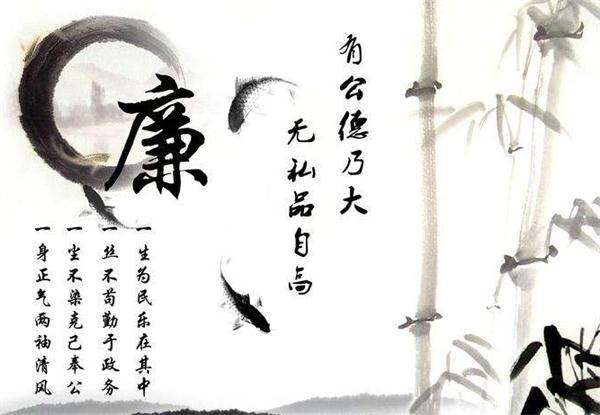 廉
有公德乃大
无私品自高
一生为民乐在其中
一丝不苟勤于政务
一尘不染克己奉公
一身正气两袖清风